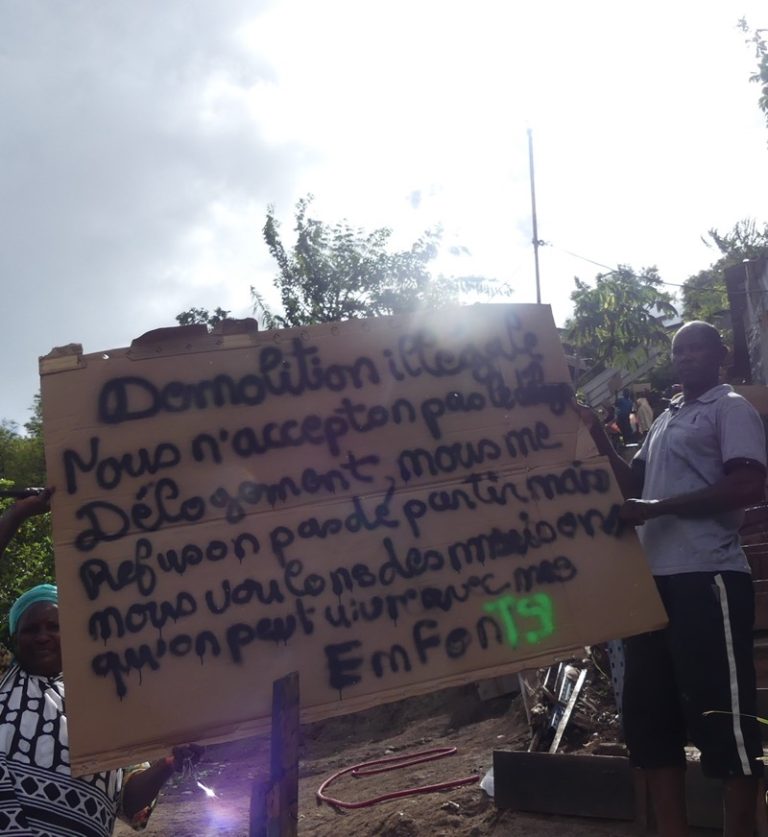 Domolition illégale
Nous n'accepton pas le
Délogoment, nous me
Refuson pas de partir mais
nous voulons des maisons
qu'on peut vivre avec mes
EmfenTS